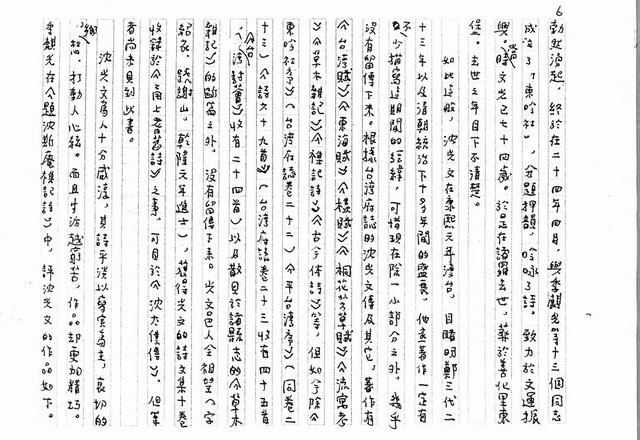 6
勃然湧起，終於在二十四年四月，與季觀光等十三個同志
成立了「東吟社」，分題押韻，吟咏了詩。致力於文運振
興。當時文光已七十四歲。於是在諸羅去世，葬於善化里東
堡。去世之年月下不清楚。
如此這般，沈光文在康熙元年渡台，目睹明鄭三代二
十三年以及清朝統治下十多年間的盛衰，他遺著作一定有
不少描寫這期間的經緯，可惜現在除一小部分之外，幾乎
沒有留傳下來。根據台灣府誌的沈光文傳及其它，著作有
《台灣賦》《東海賦》《檨賦》《桐花芳草賦》《流寓考
》《草木雜記》《雜記詩》《古今体詩》等，但如今除《
東吟社序》（台灣府誌卷二十二）《平台灣序》（同卷二
十三）《詩六十九首》（台灣府誌卷二十三收有四十五首
，《台灣詩薈》收有二十四首）以及散見於諸縣志的《草木
雜記》的斷篇之外，沒有留傳下來。光文邑人全祖望（字
紹衣，號謝山。乾隆元年進士），獲得光文的詩文集十卷
收錄於《甬上耆舊詩》之事，可見於《沈太僕傳》。但筆
者尚未見到此書。
沈光文為人十分威凜，其詩平淡以寫實為主，哀切的
鄉愁，打動人心絃。而且生活越窮苦，作品却更加精巧。
季觀光在《題沈斯庵雜記詩》中，評沈光文的作品如下。